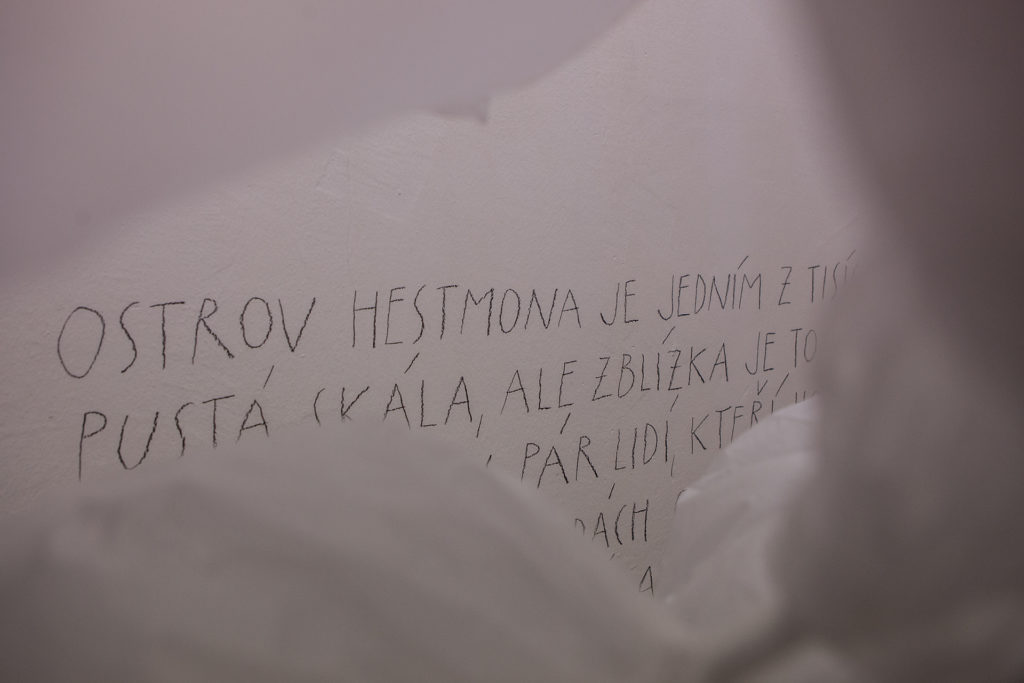 OSTROV HESTMONA JE JEDNÍM Z
PUSTÁ SKÁLA, ALE ZBLÍZKA JE TO
PÁR LIDÍ, KTEŘÍ